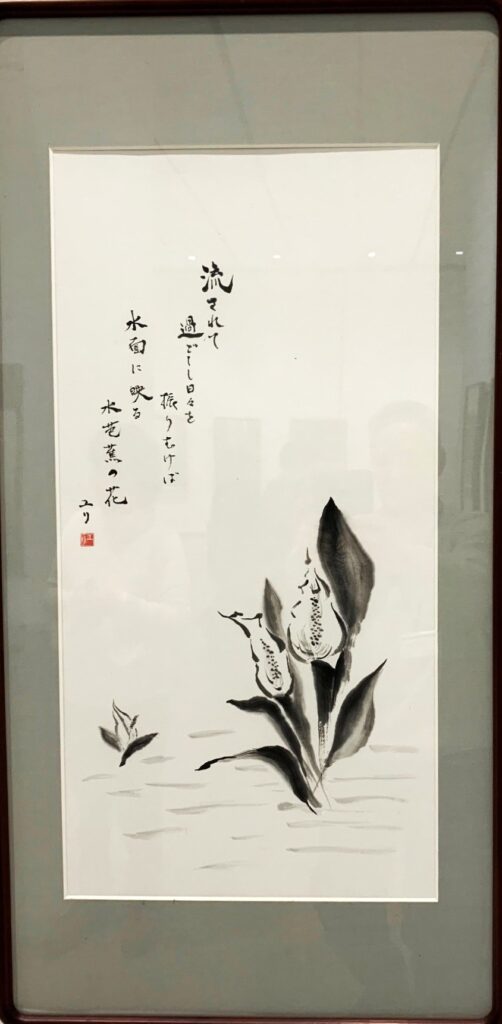 流されて
過ごし日々を
振りむけば
水面に映る
水芭蕉の花
ユリ